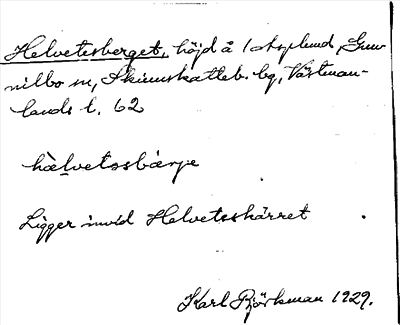 Helvetesberget, höjd å /Asplund, Gun
nilbo sn, Skinnskatteb. bg, Västman-
lands l. 62
hälvetəsbärje
Ligger invid Helvetesskärret
Karl Björkman 1929.